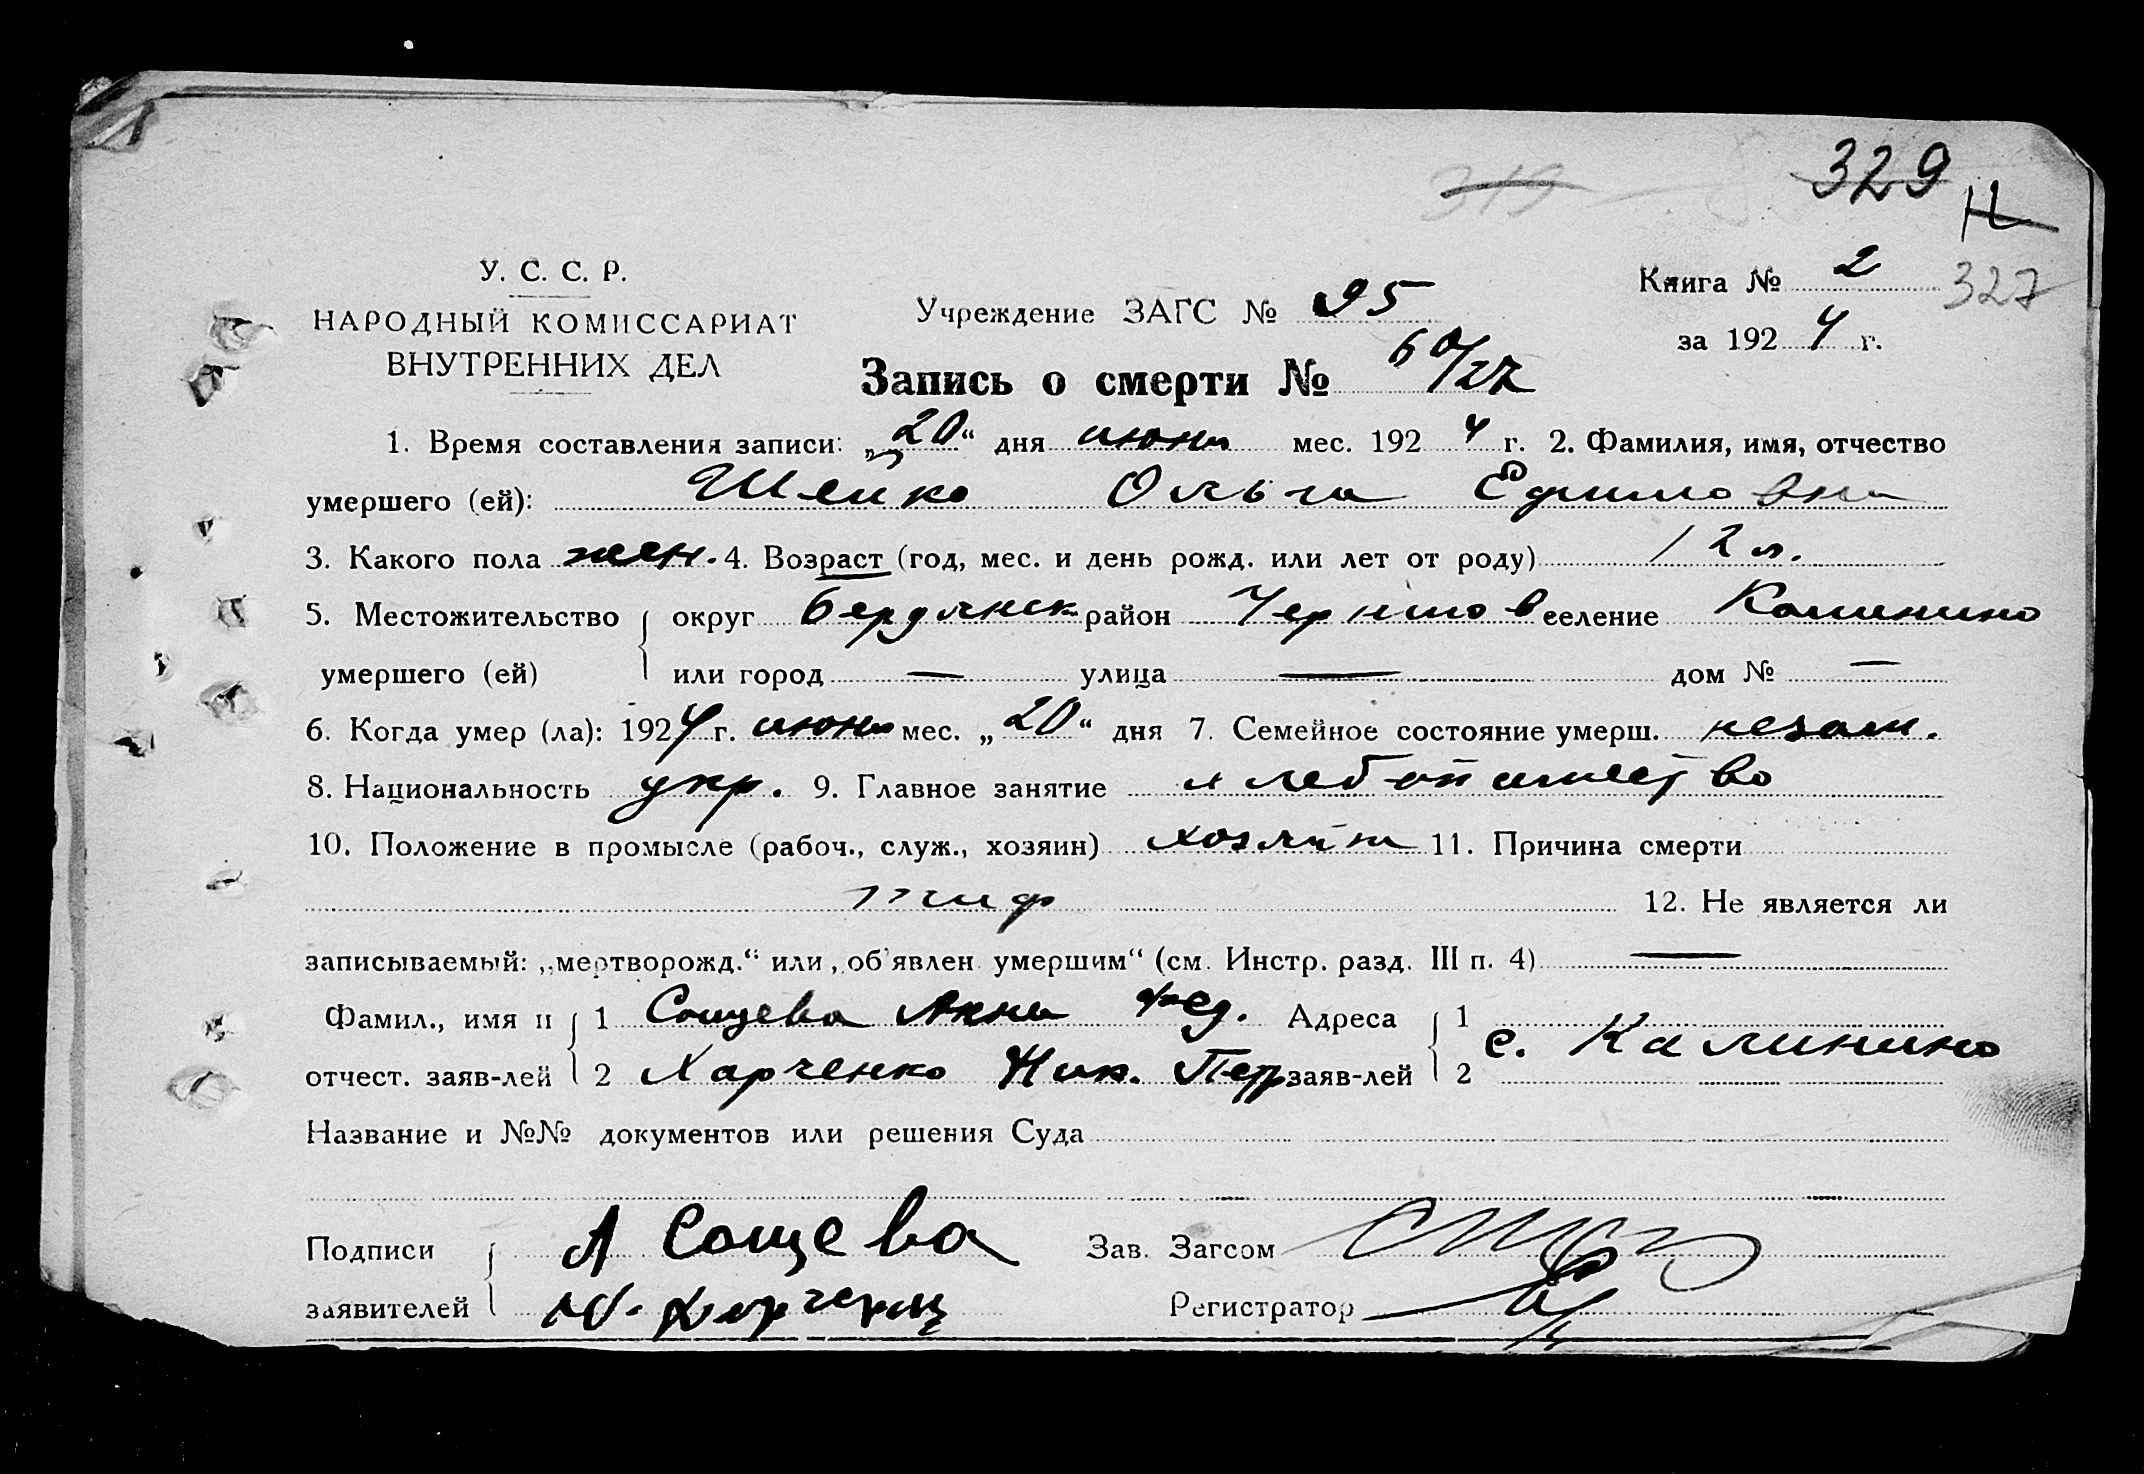 319 329
12
327
У. С. С. Р.
НАРОДНЫЙ КОМИССАРИАТ
ВНУТРЕННИХ ДЕЛ
Учреждение ЗАГС № 95
Книга № 2
за 1924 г.
Запись о смерти № 60/27
1. Время составления записи: „20“ дня июня мес. 1924 г. 2. Фамилия, имя, отчество
умершего (ей): Шейко Ольга Ефимовна
3. Какого пола жен. 4. Возраст (год, мес. и день рожд. или лет от роду) 12 л.
5. Местожительство округ Бердянск район Чернигов селение Калинино
умершего (ей) или город — улица — дом № —
6. Когда умер (ла): 1924 г. июня мес. „20“ дня 7. Семейное состояние умерш. незам.
8. Национальность укр. 9. Главное занятие хлебопашество
10. Положение в промысле (рабоч., служ., хозяин) хозяин 11. Причина смерти
тиф 12. Не является ли
записываемый: „мертворожд.“ или „об'явлен умершим“ (см. Инстр. разд. III п. 4) —
Фамил., имя и 1 Сощева Анна Фед. Адреса 1
отчест. заяв-лей 2 Харченко Ник. Петр заяв-лей 2 с. Калинино
Название и №№ документов или решения Суда
Подписи А Сощева Зав. Загсом
заявителей Н. Харченко Регистратор